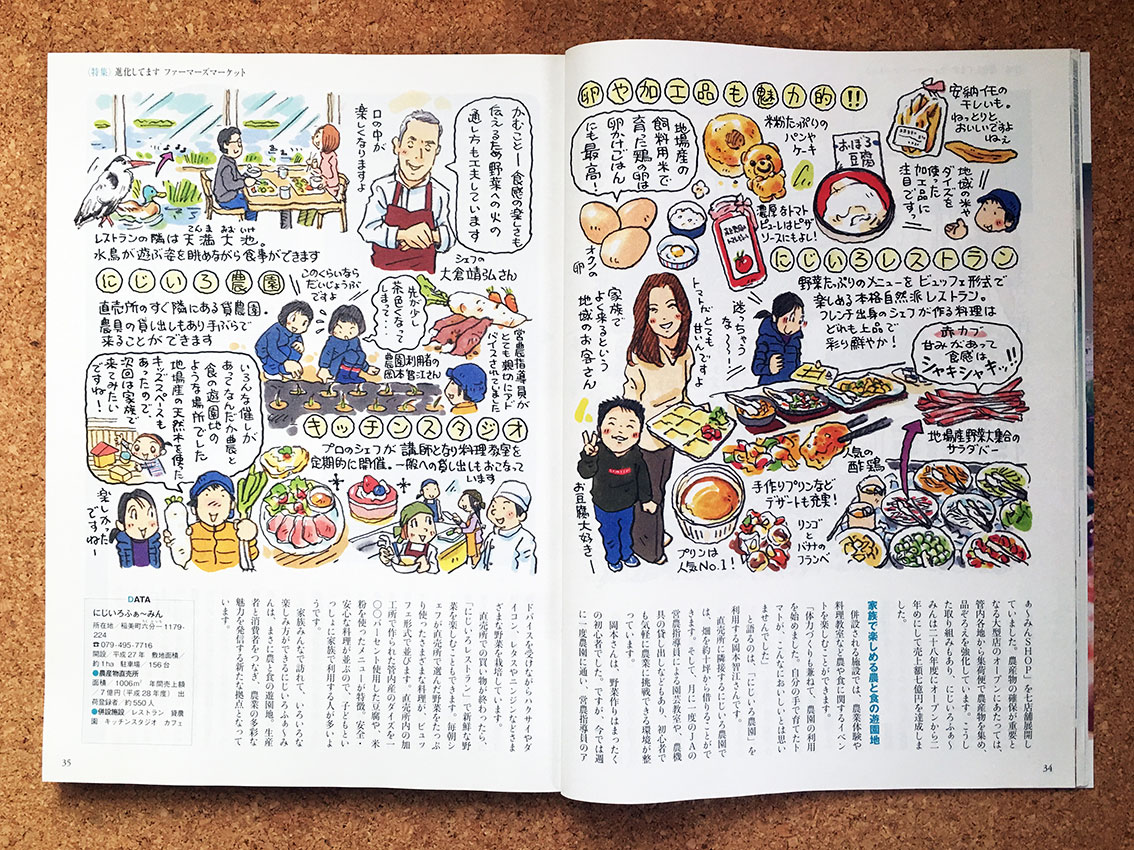 卵や加工品も魅力的!!
地場産の
飼料用米で
育った鶏の卵は
卵かけごはん
にも最高!
オクノの
卵
米粉たっぷりの
パンや
ケーキ
おぼろ
豆腐
安納イモの
干しいも。
ねっとりと
おいしいですよ
ねぇ
地域の米や
ダイズを
使った
加工品に
注目ですっ
濃厚なトマト
ピューレはピザ
ソースにもよし!
にじいろレストラン
野菜たっぷりのメニューをビュッフェ形式で
楽しめる本格自然派レストラン。
フレンチ出身のシェフが作る料理は
どれも上品で
彩り鮮やか!
家族で
よく来るという
地域のお客さん
トマトがとても
甘いんですよ
迷っちゃう
なー!
赤カブ
甘みがあって
食感は
シャキシャキッ!!
地場産野菜大集合の
サラダバー
人気の
酢鶏
手作りプリンなど
デザートも充実!
リンゴ
と
バナナの
フランベ
プリンは
人気No.1!
お豆腐大好きー
ぁ～みんSHOP」を七店舗展開し
ていました。農産物の確保が重要と
なる大型店のオープンにあたっては、
管内各地から集荷便で農産物を集め、
品ぞろえを強化しています。こうし
た取り組みもあり、にじいろふぁ～
みんは二十八年度にオープンから二
年めにして売上額七億円を達成しま
した。
家族で楽しめる農と食の遊園地
併設される施設では、農業体験や
料理教室など農や食に関するイベン
トを楽しむことができます。
「体力づくりも兼ねて、農園の利用
を始めました。自分の手で育てたト
マトが、こんなにおいしいとは思い
ませんでした」
と語るのは、「にじいろ農園」を
利用する岡本智江さんです。
直売所に隣接するにじいろ農園で
は、畑を約十坪から借りることがで
きます。そして、月に一度のJAの
営農指導員による園芸教室や、農機
具の貸し出しなどもあり、初心者で
も気軽に農業に挑戦できる環境が整
っています。
岡本さんは、野菜作りはまったく
の初心者でした。ですが、今では週
に一度農園に通い、営農指導員のア
34
〈特集〉進化してます ファーマーズマーケット
レストランの隣は天満大池。
てんま おおいけ
水鳥が遊ぶ姿を眺めながら食事ができます
口の中が
楽しくなりますよ
かむこと=食感の楽しさも
伝えるため野菜への火の
通し方も工夫しています
シェフの
大倉靖弘さん
にじいろ農園
直売所のすぐ隣にある貸農園。
農具の貸し出しもあり手ぶらで
来ることができます
このくらいなら
だいじょうぶ
ですよ
先が少し
茶色くなって
しまって…
農園利用者の
岡本智江さん
営農指導員が
とても親切にアド
バイスされていました
キッチンスタジオ
プロのシェフが講師となり料理教室を
定期的に開催。一般への貸し出しもおこなって
います
いろんな催しが
あってなんだか農と
食の遊園地の
ような場所でした
地場産の天然木を使った
キッズスペースも
あったので、
次回は家族で
来てみたい
ですね!
楽しかった
ですねー
ドバイスを受けながらハクサイやダ
イコン、レタスやニンジンなどさま
ざまな野菜を栽培しています。
直売所での買い物が終わったら、
「にじいろレストラン」で新鮮な野
菜を楽しむこともできます。毎朝シ
ェフが直売所で選んだ野菜をたっぷ
り使ったさまざまな料理が、ビュッ
フェ形式で並びます。直売所内の加
工所で作られた管内産のダイズを一
〇〇パーセント使用した豆腐や、米
粉を使ったメニューが特徴。安全・
安心な料理が並ぶので、子どもとい
っしょに家族で利用する人が多いよ
うです。
家族みんなで訪れて、いろいろな
楽しみ方ができるにじいろふぁ～み
んは、まさに農と食の遊園地。生産
者と消費者をつなぎ、農業の多彩な
魅力を発信する新たな拠点となって
います。
DATA
にじいろふぁ～みん
所在地 稲美町六分一1179-
224
☎079-495-7716
開設/平成27年 敷地面積/
約1ha 駐車場/156台
●農産物直売所
面積/1006㎡ 年間売上額
/7億円(平成28年度) 出
荷登録者/約550人
●併設施設 レストラン 貸農
園 キッチンスタジオ カフェ
35